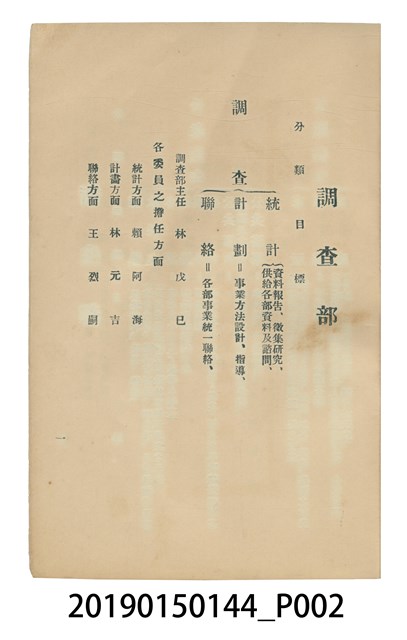 調查部
分類目標
調查
統計
資料報告、徵集研究、
供給各部資料及諮問、
計劃=事業方法設計、指導、
聯絡=各部事業統一聯絡、
調查部主任 林戊巳
各委員之擔任方面
統計方面 賴阿海
計畫方面 林元吉
聯絡方面 王烈嗣
一
20190150144_P002